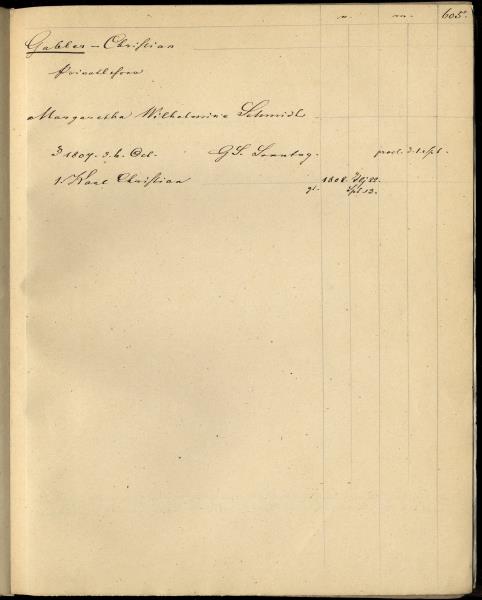 n. m. 605.
Gabler - Christian
Privatlehrer
Margaretha Wilhelmine Schmidt
1807. 3. h. Oct. G.S. Sonntag. procl. 3. t.
1. Karl Christian 1808.
gt. 13.